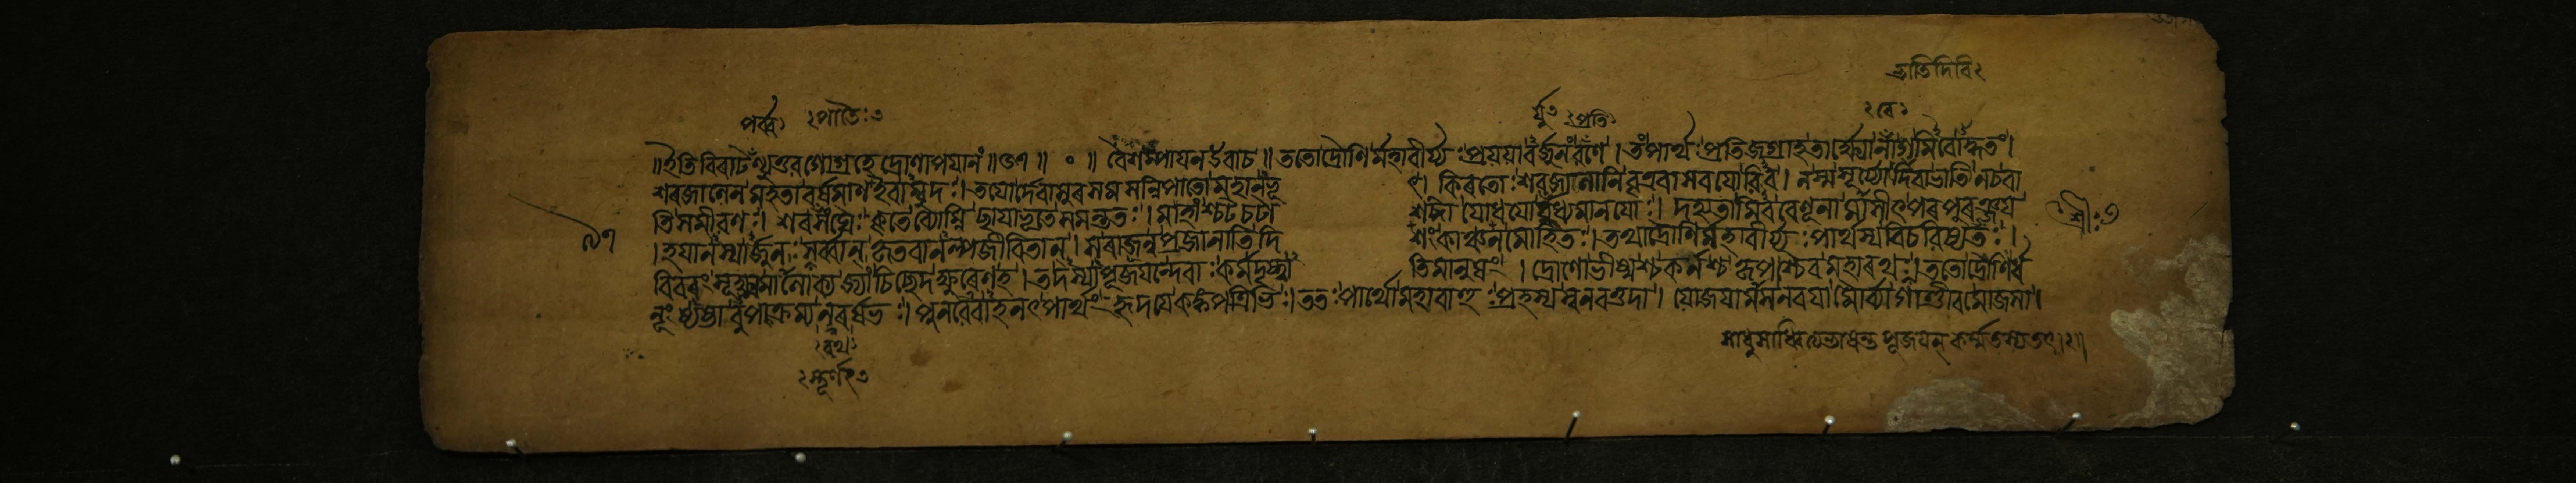 ভাতিদিবি২
পর্ব্ব
প্রতি
॥ইতিবিৰাটপৰ্ব্বণ্যুত্তৰগোগ্ৰহে দ্ৰোণাপযানং॥৫৭॥ ॰ ॥ বৈশম্পাযনউবাচ॥ততোদ্ৰৌণিৰ্মহাবীৰ্য্যঃপ্ৰযযাবৰ্জুনংৰণে। তংপাৰ্থঃপ্ৰতিজগ্ৰাহ
শৰজালেন মহতাবৰ্ষমাণইবাম্বুদঃ।তযোৰ্দেবাসুৰসমসন্নিপাতোমহানভূৎ। কিৰতোঃশৰজালানিবৃত্ৰবাসবযোৰিব।নস্মসূৰ্য্যোদিবাভাতিনচবা
তিসমীৰণঃ। শৰসংঘৈঃকৃতেব্যোম্নিছাযাভূতেসমন্ততঃ।মহাংশ্চটচটাশব্দোযোধযোৰ্যুধ্যমানযোঃ। দহ্যতামিববেণূনামাসীৎপৰপুৰঞ্জয
।হযানস্যাৰ্জুনঃসৰ্ব্বান্কৃতবানল্পজীবিতান্।সৰাজন্নপ্ৰজানাতিদিশংকাঞ্চনমোহিতঃ।তথাদ্ৰৌণিৰ্মহাবীৰ্য্যঃপাৰ্থস্যবিচৰিষ্যতঃ।
বিবৰংসূক্ষ্মমালোক্যজ্যাংচিছেদক্ষুৰেণহ।তদস্যাপূজযন্দেবাঃকৰ্মদৃষ্ট্বাতিমানুষং।দ্ৰোণোভীষ্মশ্চকৰ্ণশ্চকৃপশ্চৈবমহাৰথাঃ।ততোদ্ৰৌণিৰ্ধ
নূংষ্যষ্টাবুপাক্ৰম্যনৰৰ্ষভঃ।পুনৰেবাহনৎপাৰ্থংহৃদযেকঙ্কপত্ৰিভিঃ।ততঃপাৰ্থোমহাবাহুঃপ্ৰহস্যস্বনবত্তদা।যোজযামাসনবযামৌৰ্ব্যাগাণ্ডীবমোজসা।
সাধুসাধ্বিত্যভাষন্তপূজযন্কৰ্ম্মতস্যতৎ।২॥
শ্ৰীঃ